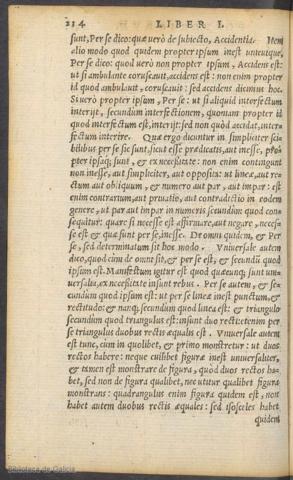 214 LIBER I.
sunt, Per se dico: quæ verò de subiecto, Accidentia. Item
alio modo quod quidem propter ipsum inest unicuique,
Per se dico: quod verò non propter ipsum, Accidens est:
ut si ambulante coruscauit, accidens est: non enim propter
id quod ambulant, coruscauit: sed accidens dicimus hoc.
Si verò propter ipsum, Per se: ut si aliquid interfectum
interijt, secundum interfectionem, quoniam propter id
quod interfectum est, interijt: sed non quòd accidat, inter
fectum interire. Quæ ergo dicuntur in simpliciter sci
bilibus per se sic sunt, sicut esse prædicatis, aut inesse, pro
pter ipsaq; sunt, & ex necessitate: non enim contingunt
non inesse, aut simpliciter, aut opposita: ut lineæ, aut re
ctum aut obliquum, & numero aut par, aut impar: est
enim contrarium, aut priuatio, aut contradictio in eodem
genere, ut par aut impar in numeris secundùm quod con
sequitur: quare si necesse est affirmare, aut negare, necef
se est & quæ sunt per se, inesse. De omni quidem, & Per
se, sed determinatum sit hoc modo. Vniuersale autem
dico, quod cùm de omni sit, & per se est, & secundũ quod
ipsum est. Manifestum igitur est quòd quæcunq; sunt uni-
uersalia, ex necessitate insunt rebus. Per se autem, & se-
cundùm quod ipsum est: ut per se lineæ inest punctum, &
rectitudo: & nanq; secundùm quod linea est: & triangulo
secundùm quod triangulus est: insunt duo recti: etenim per
se triangulus duobus rectis æqualis est. Vniuersale autem
est tunc, cùm in quolibet, & primo monstretur: ut duos
rectos habere: neque cuilibet figuræ inest vniuersaliter,
& tamen est monstrare de figura, quòd duos rectos ha-
bet, sed non de figura qualibet, nec utitur qualibet figura
monstrans: quadrangulus enim figura quidem est, non
habet autem duobus rectis æquales: sed isosceles habet
quidem
Biblioteca de Galicia